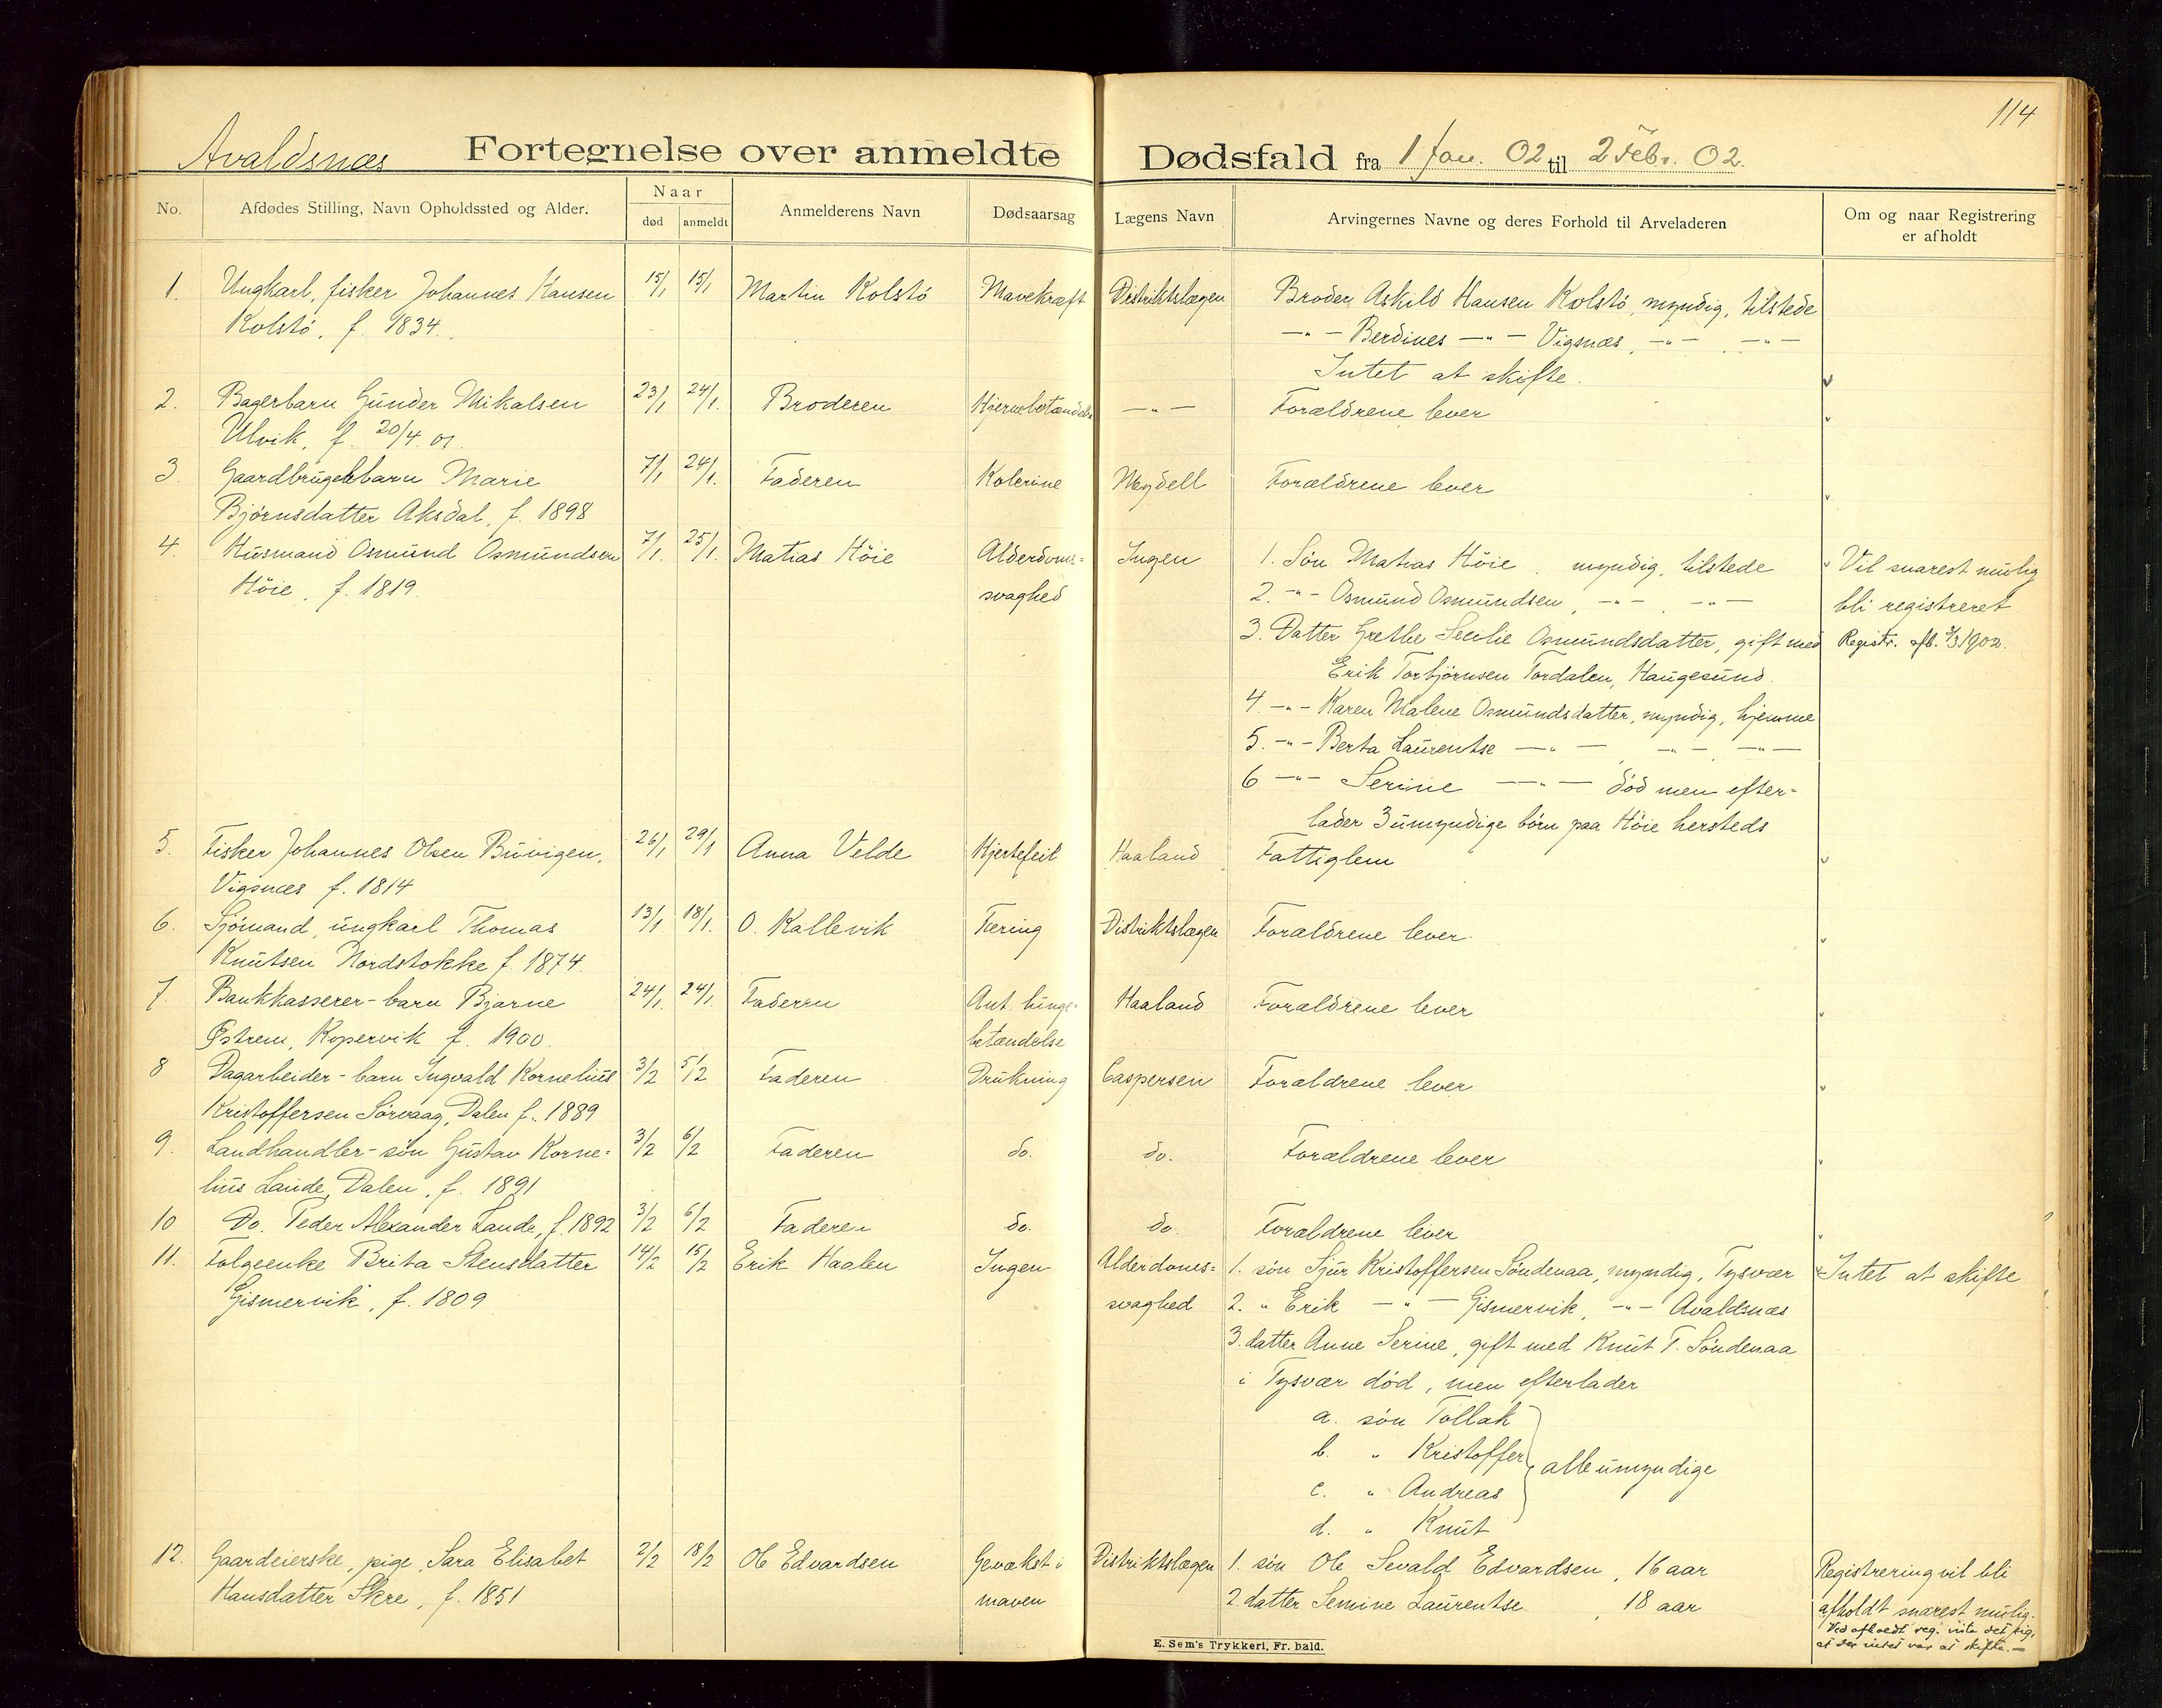 114
Avaldsnæs Fortegnelse over anmeldte Dødsfald fra 1 Jan. 02 til 2 Febr. 02.
No.
Afdødes Stilling, Navn Opholdssted og Alder.
Naar
død
anmeldt
Anmelderens Navn
Dødsaarsag
Lægens Navn
Arvingernes Navne og deres Forhold til Arveladeren
Om og naar Registrering
er afholdt
1. Ungkarl, fisker Johannes Hansen 15/1 15/1 Martin Kolstö Mavekræft Distriktslægen Broder Askild Hansen Kolstö, myndig, tilstede
Kolstö, f. 1834. —"— Berdines —"— Vigsnæs, —"— , —"—
Intet at skifte.
2. Bagerbarn Gunder Mikalsen 23/1 24/1. Broderen Hjernebetændelse —"— Forældrene lever
Ulvik, f. 20/4. 01.
3. Gaardbrugerbarn Marie 7/1 24/1. Faderen Kolerine Meydell Forældrene lever
Bjørnsdatter Aksdal, f. 1898
4. Husmand Osmund Osmundsen 7/1. 25/1. Matias Höie Alderdoms= Ingen 1. Sön Matias Höie, myndig, tilstede Vil snarest mulig
Höie, f. 1819. svaghed 2. —"— Osmund Osmundsen, —"—, —"— bli registreret
3. Datter Grethe Secilie Osmundsdatter, gift med Registr. afh. 3/3 1902.
Erik Torbjörnsen Tordalen, Haugesund.
4. —"— Karen Malene Osmundsdatter, myndig, hjemme
5. —"— Berta Laurentse —"— —"—, —"—
6 —"— Serine —"— död men efter=
lader 3 umyndige börn paa Höie hersteds
5. Fisker Johannes Olsen Buvigen, 26/1 29/1 Anna Velde Hjertefeil Haaland Fattiglem
Vigsnæs f. 1814
6. Sjömand, ungkarl Thomas 13/1. 18/1. O. Kallevik Tæring Distriktslægen Forældrene lever.
Knutsen Nordstokke f. 1874.
7. Bankkasserer-barn Bjarne 24/1. 24/1. Faderen Aut. lunge= Haaland Forældrene lever
Østrem, Kopervik f. 1900. betændelse
8 Dagarbeider-barn Ingvald Kornelius 3/2 5/2 Faderen Drukning Caspersen Forældrene lever
Kristoffersen Sörvaag, Dalen f. 1889
9. Landhandler-sön Gustav Korne= 3/2 6/2 Faderen do. do. Forældrene lever
lius Lande, Dalen, f. 1891
10 Do. Peder Alexander Lande, f. 1892 3/2 6/2 Faderen do. do. Forældrene lever
11. Folgeenke Brita Stensdatter 14/2 15/2 Erik Haalen Ingen Alderdoms= 1. sön Sjur Kristoffersen Söndenaa, myndig, Tysvær Intet at skifte
Gismervik, f. 1809 svaghed 2. " Erik —"— Gismervik, —"— Avaldsnæs
3. datter Anne Serine, gift med Knut T. Söndenaa
i Tysvær död, men efterlader
a. sön Tollak
b. " Kristoffer
alle umyndige
c. " Andreas
d. " Knut
12. Gaardeierske, pige, Sara Elisabet 2/2 18/2 Ole Edvardsen Gevækst i Distriktslægen 1. sön Ole Sevald Edvardsen, 16 aar Registrering vil bli
Hansdatter Skre, f. 1851 maven 2. datter Semine Laurentse, 18 aar afholdt snarest mulig.
Ved afholdt reg. viste det sig,
at der intet var at skifte.—
E. Sem's Trykkeri, Fr. hald.